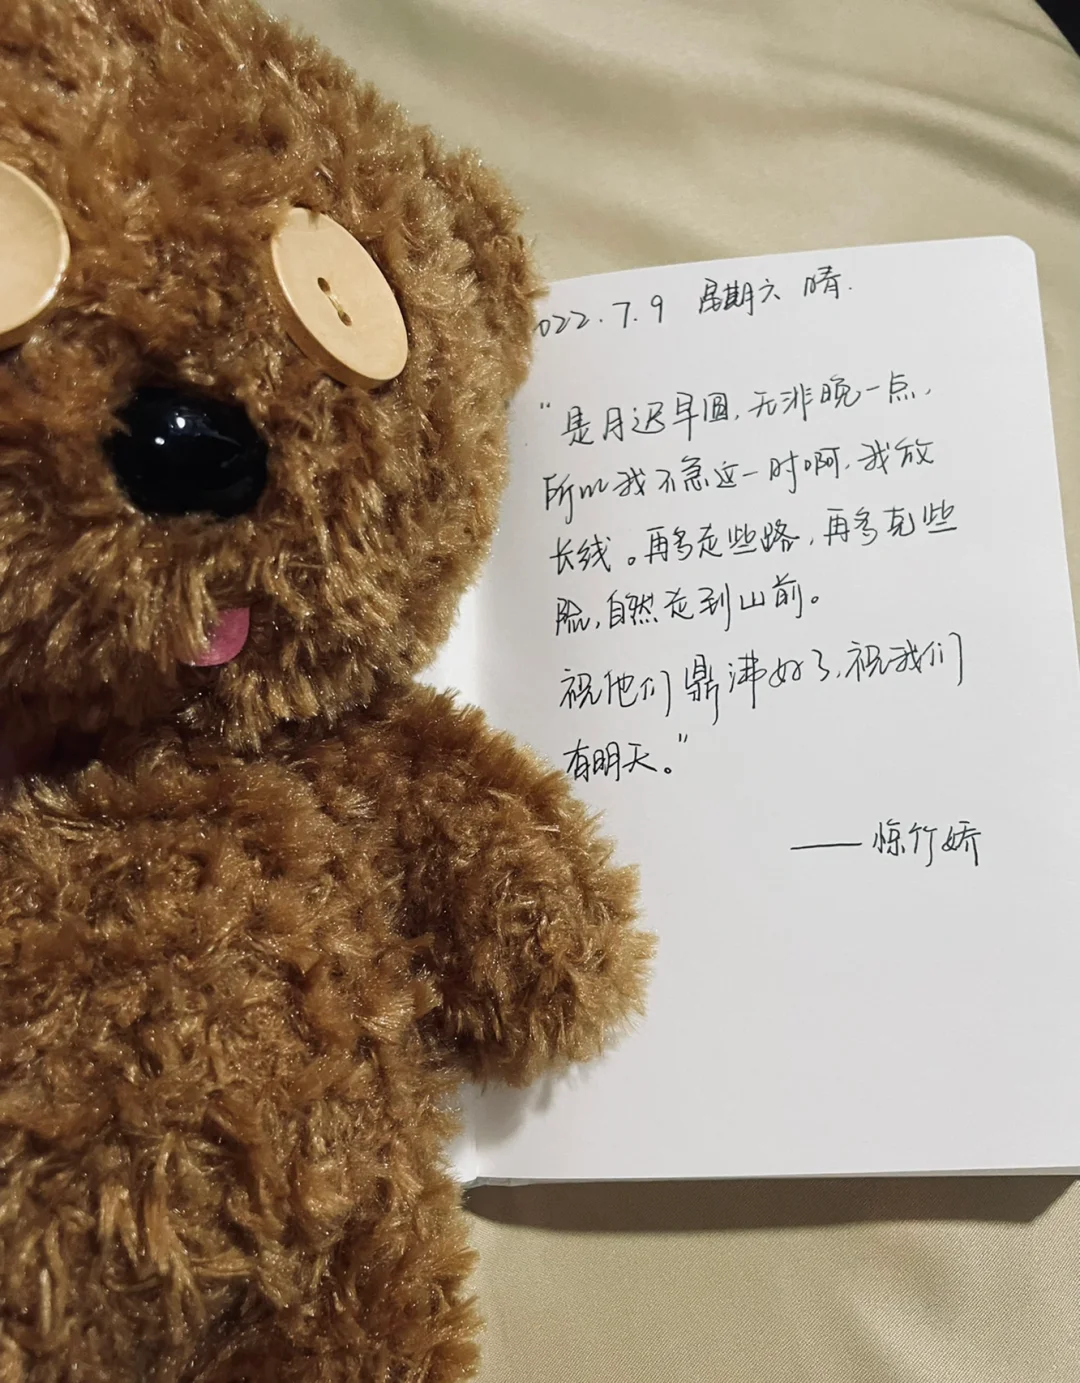 022.7.9 星期六 晴.
“是月迟早圆,无非晚一点,
所以我不急这一时啊,我放
长线。再多走些路,再多克些
险,自然走到山前。
祝他们鼎沸好了,祝我们
有明天。”
——惊竹娇